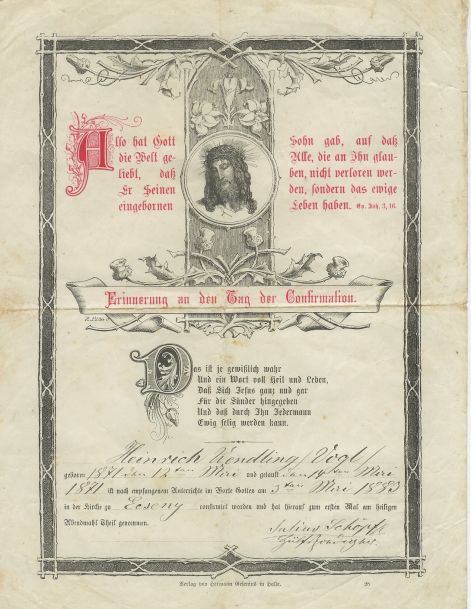 Also hat Gott
die Welt ge-
liebt, daß
Er Seinen
eingebornen
Sohn gab, auf daß
Alle, die an Ihn glau-
ben, nicht verloren wer-
den, sondern das ewige
Leben haben. Ev. Joh. 3, 16.
Erinnerung an den Tag der Confirmation.
Das ist je gewißlich wahr
Und ein Wort voll Heil und Leben,
Daß Sich Jesus ganz und gar
Für die Sünder hingegeben
Und daß durch Ihn Jedermann
Ewig selig werden kann.
Heinrich Kendling / Vogl /
geboren 1871 den 12ten Mai und getauft den 14ten Mai
1871 ist nach empfangenem Unterrichte im Worte Gottes am 3ten Mai 1883
in der Kirche zu Eoseny confirmirt worden und hat hierauf zum ersten Mal am heiligen
Abendmahl Theil genommen.
Julius Schöpf
Verlag von Hermann Gesenius in Halle.